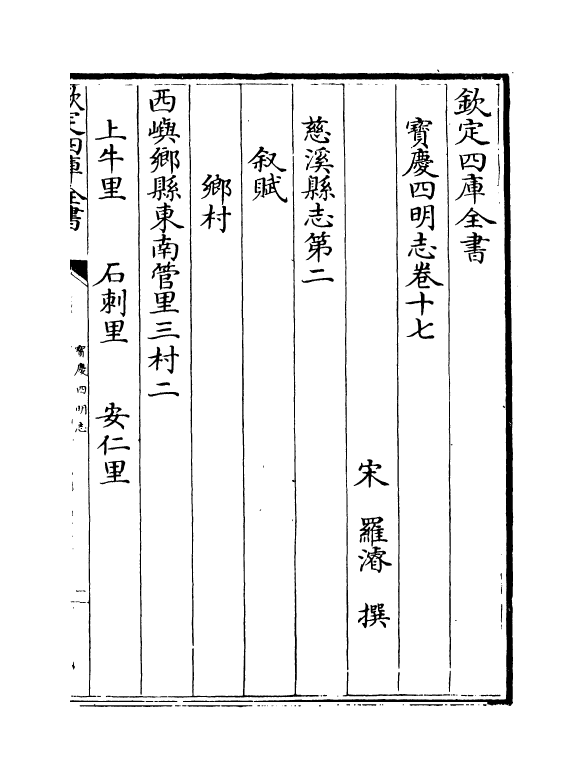 欽定四庫全書
寳慶四明志卷十七
宋 羅濬 撰
慈溪縣志第二
叙賦
鄉村
西嶼鄉縣東南管里三村二
上牛里 石刺里 安仁里
欽定四庫全書
寳慶四明志